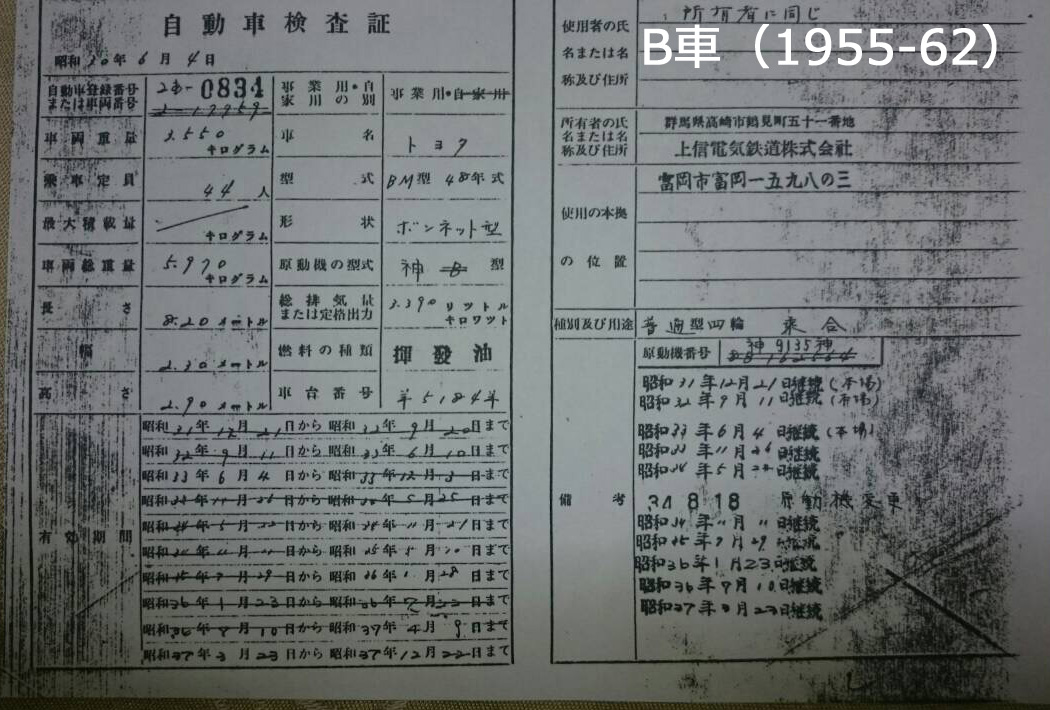 自動車検査証
昭和30年6月4日
自動車登録番号または車両番号 2あ-0834
事業用・自家用の別 事業用・自家用
車両重量 3.550 キログラム
車名 トヨタ
乗車定員 44人
型式 BM型 48年式
最大積載量 キログラム
形状 ボンネット型
車両総重量 5.970 キログラム
原動機の型式 神 B 型
長さ 8.20 メートル
総排気量または定格出力 3.390 リットル キロワット
幅 2.30 メートル
燃料の種類 揮発油
高さ 2.90 メートル
車台番号 5184
有効期間
昭和31年12月21日から 昭和32年9月20日まで
昭和32年9月11日から 昭和33年6月10日まで
昭和33年6月4日から 昭和33年12月3日まで
昭和 年 月 日から 昭和 年5月25日まで
昭和 年5月 日から 昭和 年11月21日まで
昭和 年 月 日から 昭和 年 月 日まで
昭和35年7月29日から 昭和36年1月28日まで
昭和36年1月23日から 昭和36年7月22日まで
昭和36年7月10日から 昭和37年4月9日まで
昭和37年3月23日から 昭和37年12月22日まで
B車（1955-62）
使用者の氏名または名称及び住所 所有者に同じ
所有者の氏名または名称及び住所
群馬県高崎市鶴見町五十一番地
上信電気鉄道株式会社
使用の本拠の位置 富岡市富岡一五九八の三
種別及び用途 普通型四輪 乗合
原動機番号 神9135神
備考
昭和31年12月21日継続(本場)
昭和32年9月11日継続(本場)
昭和33年6月4日継続(本場)
昭和33年11月26日継続
昭和34年5月22日継続
34 8 18 原動機乗更
昭和34年11月11日継続
昭和35年7月29日継続
昭和36年1月23日継続
昭和36年7月10日継続
昭和37年3月23日継続